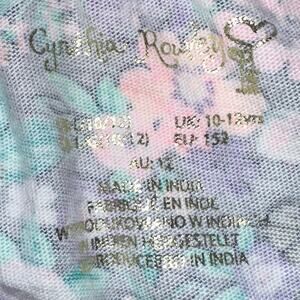 Cynthia Rowley
UK: 10-12yrs
EU: 152
AU: 12
MADE IN INDIA
FABRIQUE EN INDE
WYPRODUKOWANO W INDIACH
IN INDIEN HERGESTELLT
GEPRODUCEERD IN INDIA